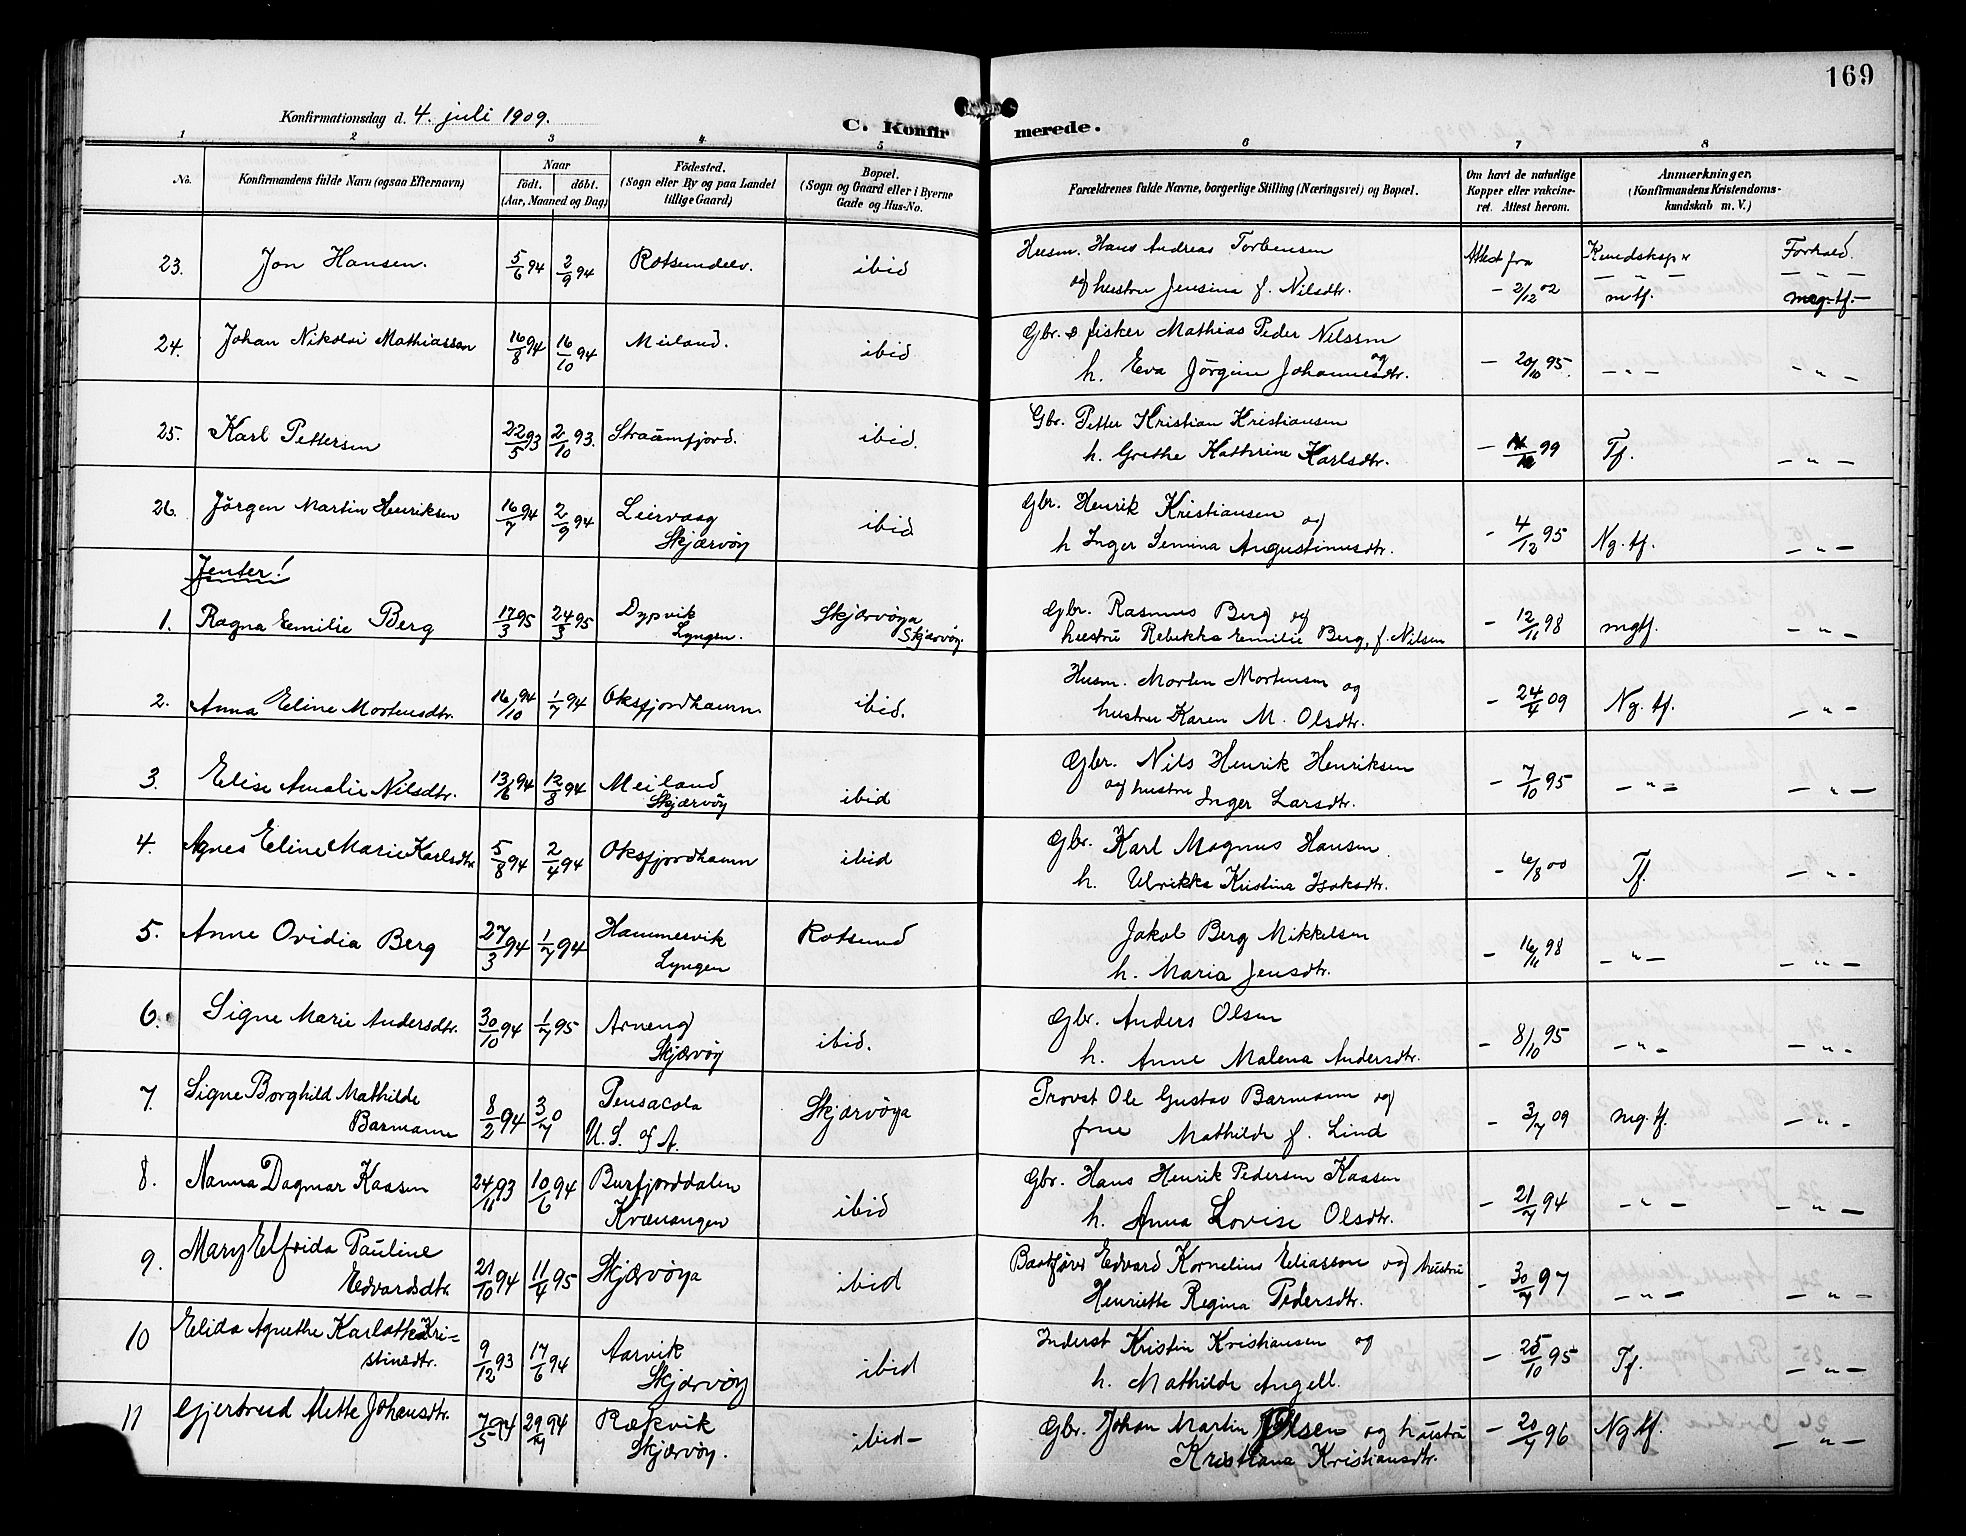 169
Konfirmationsdag d. 4. juli 1909.
C. Konfirmerede.
1 2 3 4 5 6 7 8
No.
Konfirmandens fulde Navn (ogsaa Efternavn)
Naar
født. døbt.
(Aar, Maaned og Dag)
Fødested.
(Sogn eller By og paa Landet
tillige Gaard)
Bopæl.
(Sogn og Gaard eller i Byerne
Gade og Hus-No.
Forældrenes fulde Navne, borgerlige Stilling (Næringsvei) og Bopæl.
Om havt de naturlige
Kopper eller vakcine-
ret. Attest herom.
Anmærkninger.
(Konfirmandens Kristendoms-
kundskab m. V.)
23. Jon Hansen. 5/6 94 2/9 94 Rotsundelv. ibid Husm. Hans Andreas Torbensen Attest fra Kundskap Forhold.
og hustru Jensina f. Nilsdtr. - 2/12 02 mtf. meg. tf.
24. Johan Nikolai Mathiassen 16/8 94 16/10 94 Meiland. ibid Gbr. & fisker Mathias Peder Nilssen og
h. Eva Jörgine Johannesdtr. - 20/10 95. - " - - " -
25. Karl Pettersen 22/5 93 2/10 93. Straumfjord. ibid. Gbr. Petter Kristian Kristiansen
h. Grethe Kathrine Karlsdtr. - 99 Tf. - " -
26. Jörgen Martin Henriksen 16/7 94 2/9 94 Leirvaag ibid Gbr. Henrik Kristiansen og
Skjærvöy h Inger Semina Augustinusdtr. - 4/12 95 Ng. tf. - " -
Jenter!
1. Ragna Emilie Berg 17/3 95 24/3 95 Dypvik Skjærvöya Gbr. Rasmus Berg og
Lyngen. Skjærvöy. hustru Rebekka Emilie Berg, f. Nilsen - 12/11 98 mgtf. - " -
2. Anna Eline Mortensdtr. 16/10 94 1/7 94 Oksfjordhamn ibid. Husm. Morten Mortensen og
hustru Karen M. Olsdtr. - 24/4 09 Ng. tf. - " -
3. Elise Amalie Nilsdtr. 13/6 94 12/8 94 Meiland ibid Gbr. Nils Henrik Henriksen
Skjærvöy og hustru Inger Larsdtr. - 7/10 95 - " - - " -
4. Agnes Eline Marie Karlsdtr. 5/8 94 2/4 94 Oksfjordhamn ibid Gbr. Karl Magnus Hansen
h. Ulrikka Kristina Isaksdtr. - 6/8 00 Tf. - " -
5. Anne Ovidia Berg 27/3 94 1/7 94 Hammervik Rotsund Jakob Berg Mikkelsen
Lyngen h. Maria Jensdtr. - 16/11 98 - " - - " -
6. Signe Marie Andersdtr. 30/10 94 1/7 95 Arneng ibid. Gbr. Anders Olsen
Skjærvöy h. Anne Malena Andersdtr. - 8/10 95 - " - - " -
7. Signe Borghild Mathilde 8/2 94 3/7 0 Pensacola Skjærvöya Provst Ole Gustav Barmann og
Barmann U. S. of A. frue Mathilde f. Lind - 3/7 09 mg. tf. - " -
8. Nanna Dagmar Kaasen 24/11 93 10/6 94 Burfjorddalen ibid Gbr. Hans Henrik Pedersen Kaasen
Kvænangen h. Anna Lovise Olsdtr. - 21/7 94 - " - - " -
9. Mary Elfrida Pauline 21/10 94 11/4 95 Skjærvöya ibid Baatförer Edvard Kornelius Eliassen og hustru
Edvardsdtr. Henriette Regina Pedersdtr. - 30/7 97 - " - - " -
10 Elida Agnethe Karlotha Kri-
stinsdtr. 9/12 93 17/6 94 Aarvik ibid Inderst Kristin Kristiansen og
Skjærvöy h. Mathilde Angell. - 25/10 95 Tf. - " -
11 Gjertrud Mette Johansdtr. 7/5 94 29/7 94 Rækvik ibid- Gbr. Johan Martin Olsen og hustru
Skjærvöy. Kristiana Kristiansdtr. - 20/7 96 Ng tf. - " -